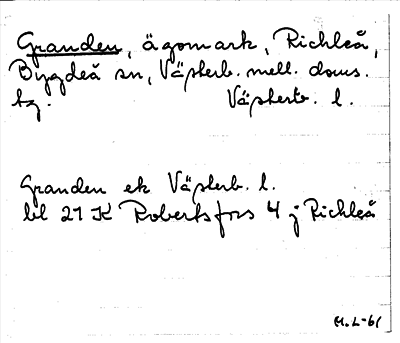 Granden, ägomark, Richleå,
Bygdeå sn, Västerb. mell. doms.
tg. Västerb. l.
Granden ek Västerb. l.
bl 21 K Robertsfors 4 j Richleå
H. L-61